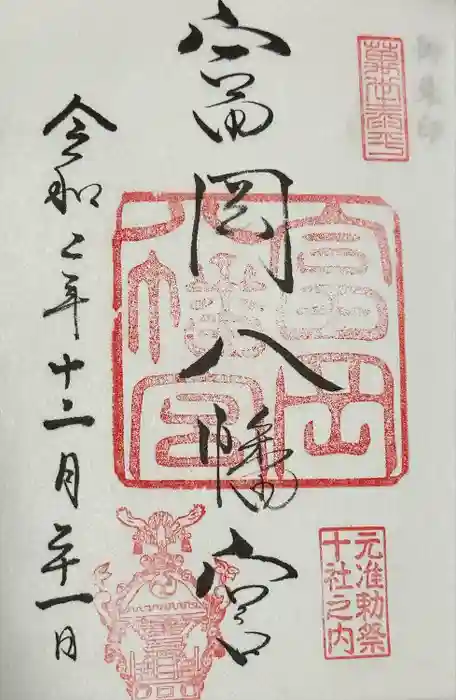 元准勅祭
十社之内
富岡八幡宮
富岡
八幡宮
令和二年十二月廿一日